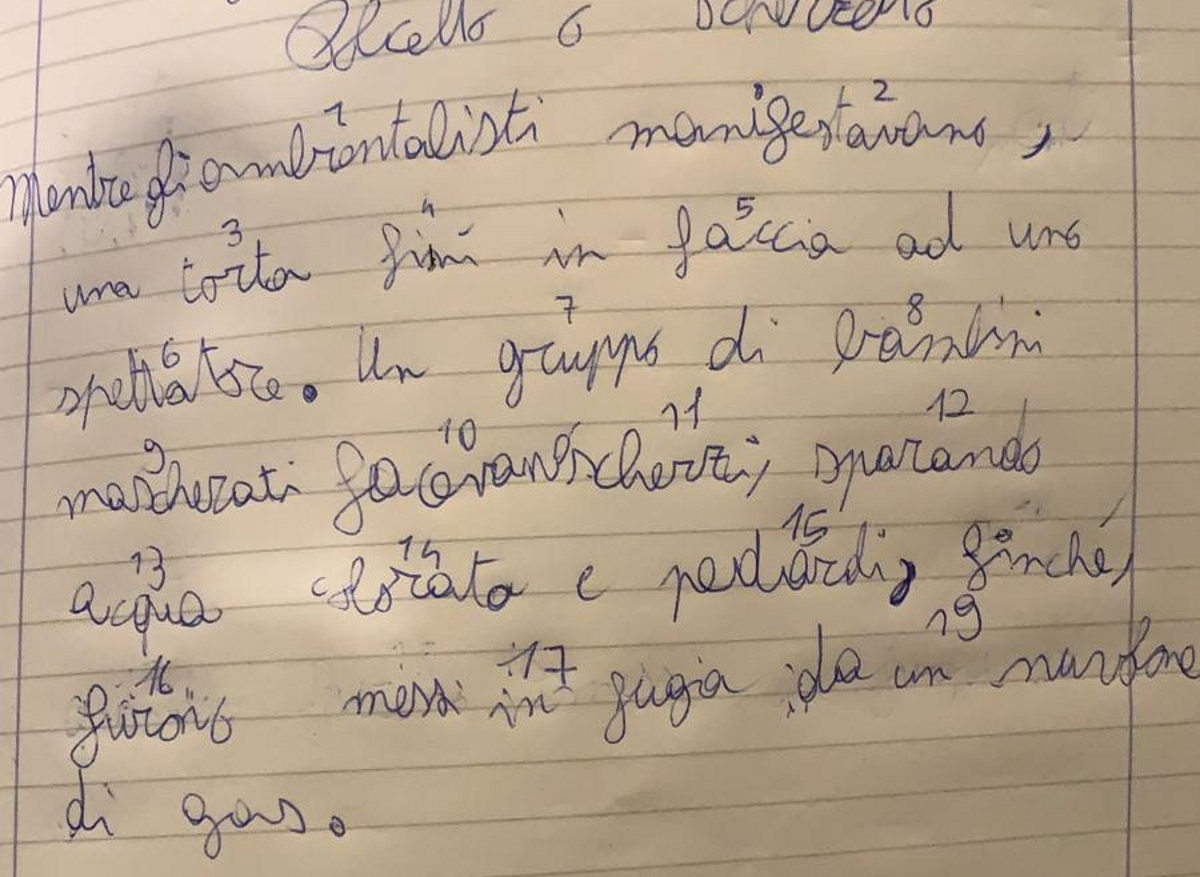 o
1 2
Mentre gli ambientalisti manifestavano,
3 4 5
una torta finì in faccia ad uno
6 7 8
spettatore. Un gruppo di bambini
9 10 11 12
mascherati facevano scherzi, sparando
13 14 15
acqua colorata e pedardi, finché,
16 17 19
furono messi in fugia da un
di gas.